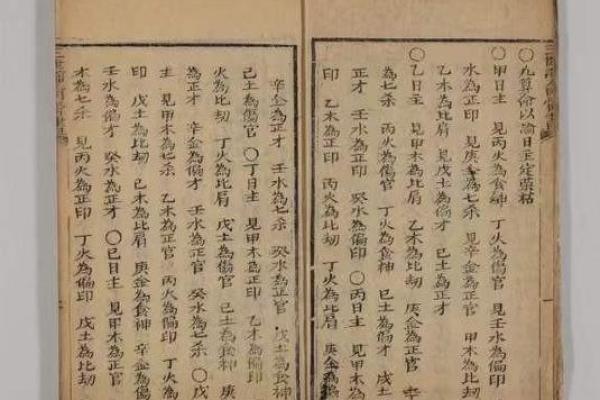 〇凡算命以論日主定榮枯
〇甲日主 見丙火為食神 丁火為傷官 見壬水為偏印
水為正印 見庚金為七杀 辛金為正官 甲木為比
乙木為比肩 見戊土為偏才 己土為正才
〇乙日主 見甲木為比肩 乙木為比劫 庚金為
為七杀 丙火為傷官 丁火為食神 己土為
正才 壬水為正印 癸水為偏印 〇丙日主 見甲木為偏
印 乙木為正印 丙火為比劫 丁火為比肩 庚金為
辛金為正才 壬水為七杀 癸水為偏官 戊土為食神
己土為傷官 〇丁日主 見甲木為正印 乙木為偏印
火為比劫 丁火為比肩 戊土為傷官 己土為食神 庚
為正才 辛金為偏才 壬水為正官 癸水為七杀 〇戊
主 見甲木為七杀 乙木為正官 丙火為偏印 丁火為
印 戊土為比劫 己木為比肩 庚金為食神 辛金為
壬水為偏才 癸水為正才 〇己日主 見甲木為正官
木為七杀 見丙火為正印 丁火為偏印 戊土為比劫